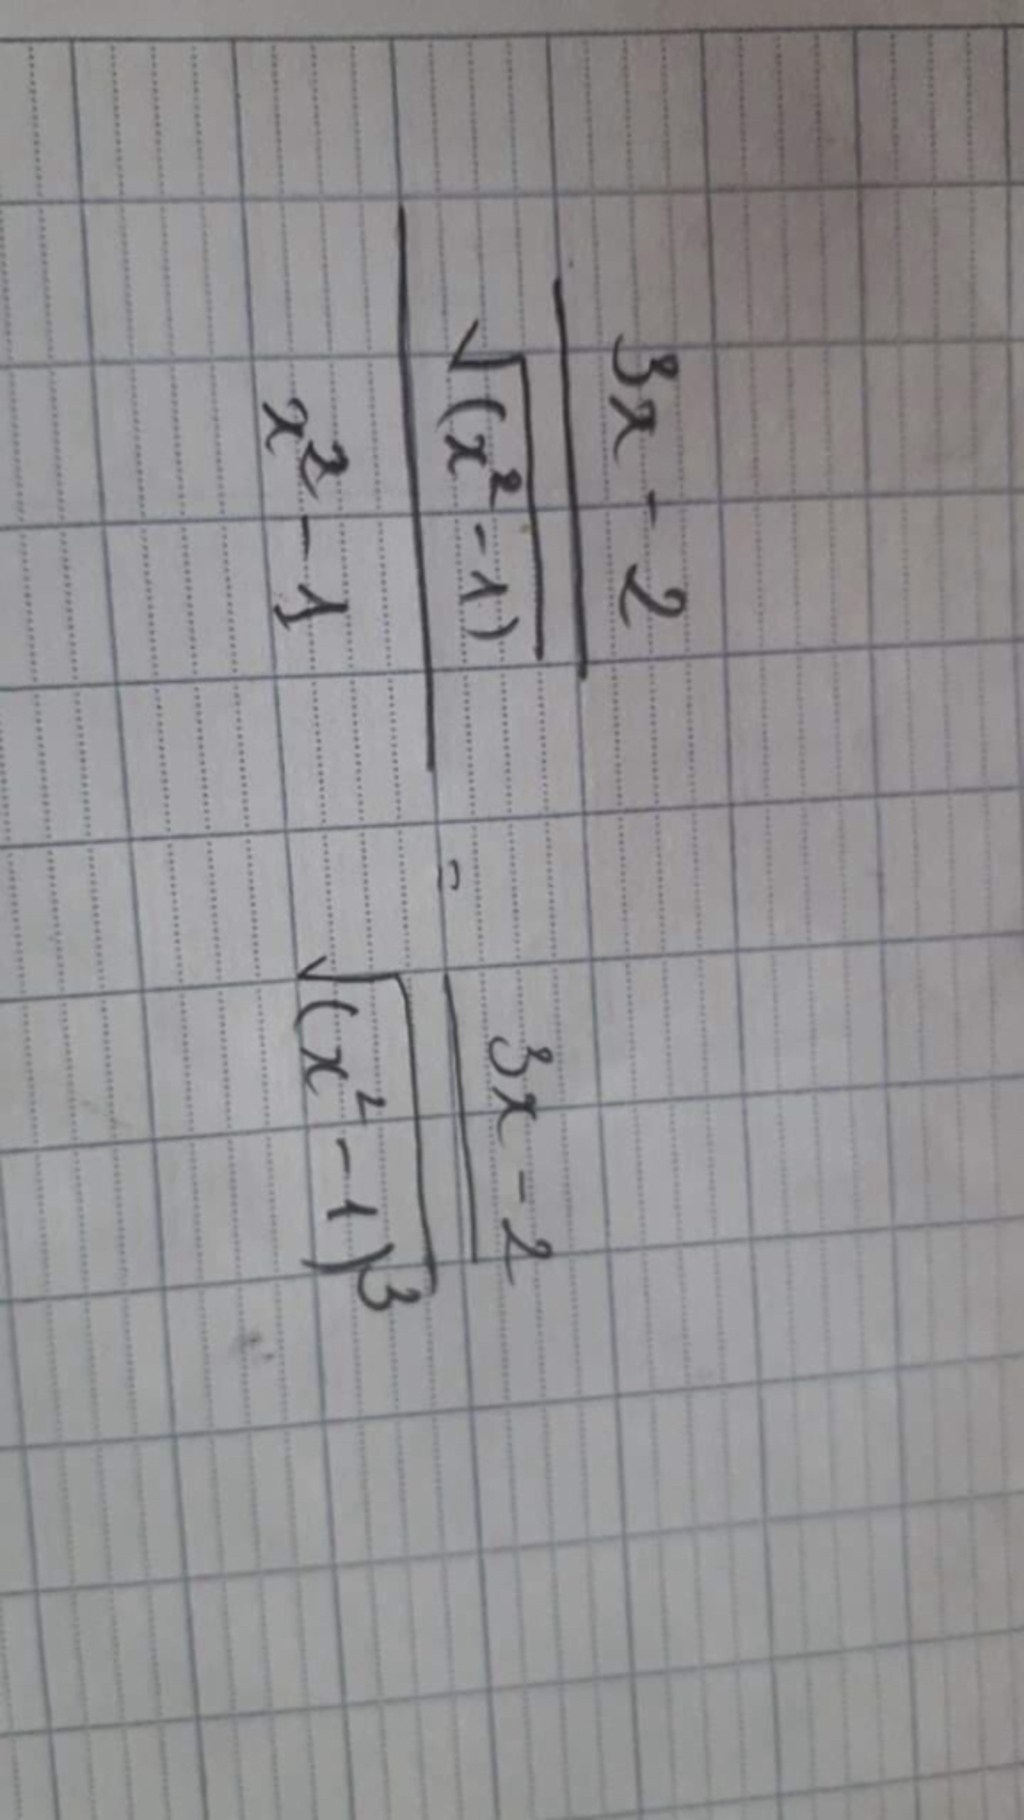 3x - 2
√(x² - 1)
x² - 1
=
3x - 2
√(x² - 1)³